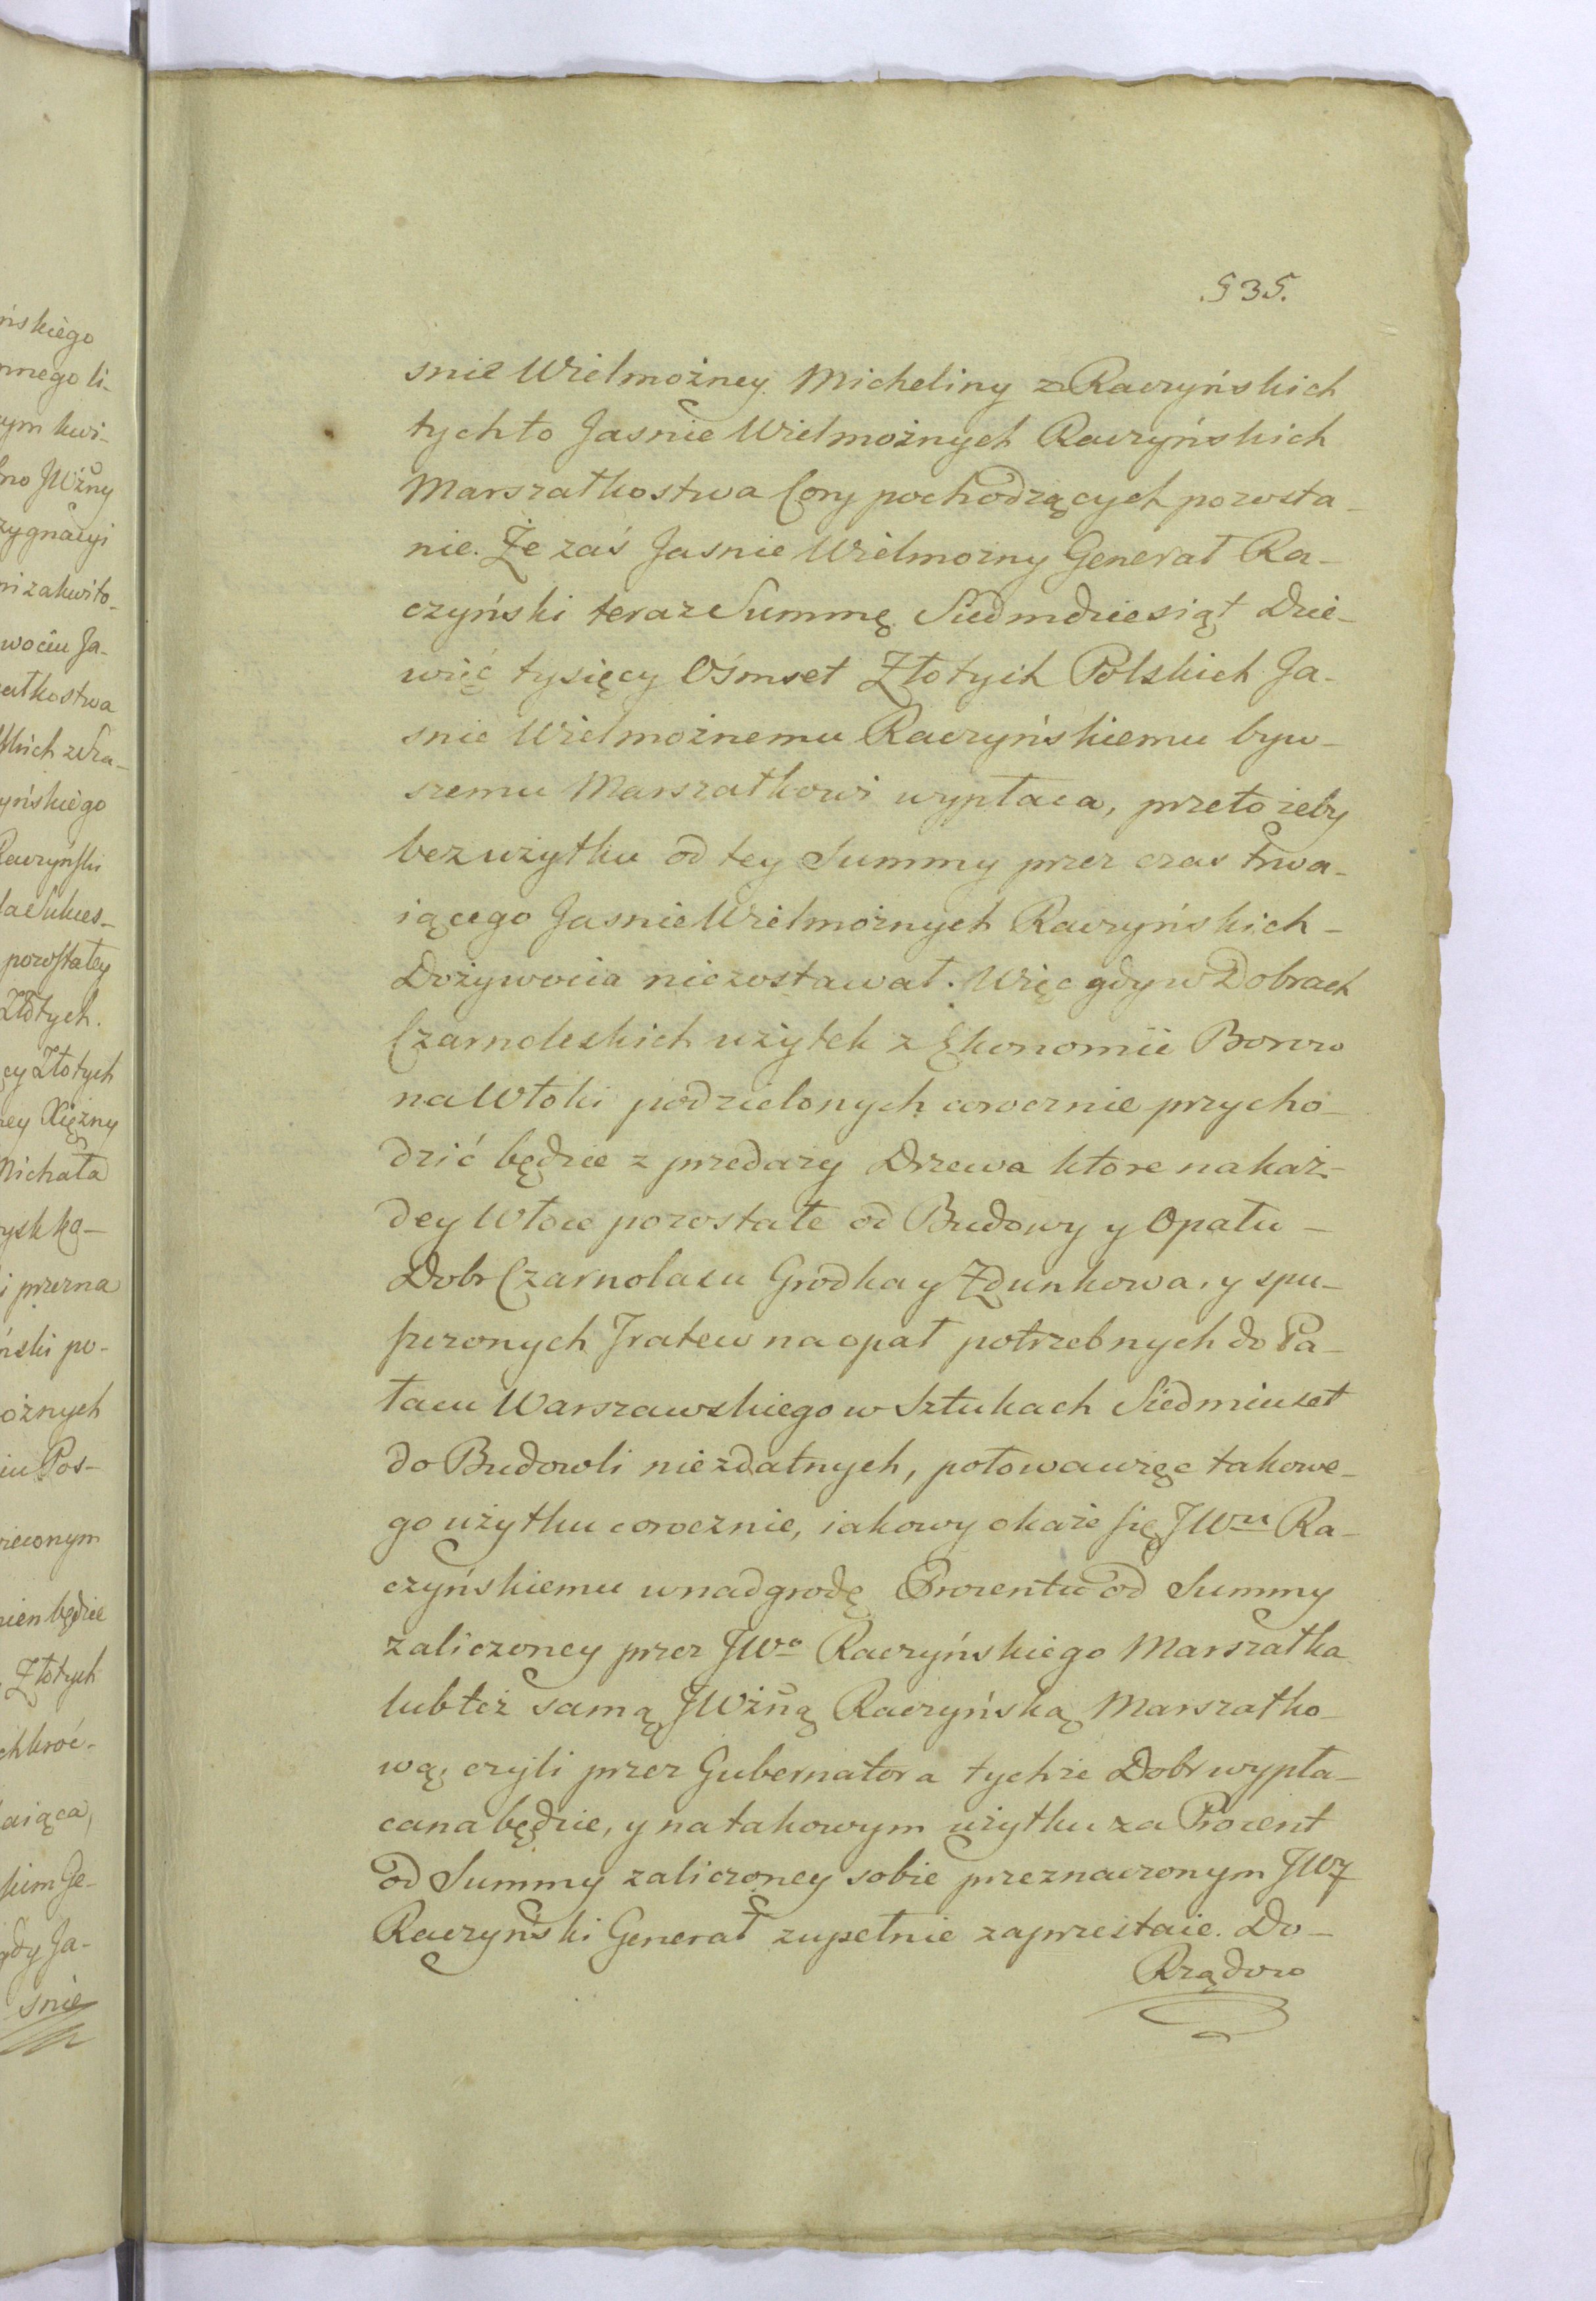 ńskiego
nnego li-
ym kwi-
no JWżny
zygnacyi
ni zakwito-
wociu Ja-
atkostwa
skich z Ra-
yńskiego
Raczyński
la Sukces-
pozostałey
Złotych.
cy Złotych
ney Xiężny
Michała
i przezna
ński po-
ożnych
iu Pos-
rieconym
nien będzie
Złotych
chkroć-
aiąca,
skim Ge-
gdy Ja-
śnie
§35.
snie Wielmożney Micheliny z Raczyńskich
tych to Jasnie Wielmożnych Raczyńskich
Marszałkostwa Cory pochodzących pozosta-
nie. Że zaś Jasnie Wielmożny Generał Ra-
czyński teraz Summę Siedmdziesiąt Dzie-
więć tysięcy Ośmset Złotych Polskich Ja-
snie Wielmożnemu Raczyńskiemu byw-
szemu Marszałkowi wypłaca, przeto żeby
bez użytku od tey Summy przez czas trwa-
iącego Jasnie Wielmożnych Raczyńskich -
Dożywocia niezostawał. Więc gdy w Dobrach
Czarnoleskich użytek z Ekonomii Borow
na Włoki podzielonych corocznie przycho-
dzić będzie z przedaży Drzewa ktore na każ-
dey Włoce pozostałe od Budowy y Opału -
Dobr Czarnolasu Grodka y Zdunkowa, y spu-
szczonych Tratew na opał potrzebnych do Pa-
łacu Warszawskiego w Sztukach Siedmiuset
do Budowli niezdatnych, połowa więc takowe-
go użytku corocznie, iakowy okaże się JWu Ra-
czyńskiemu w nadgrodę Procentu od Summy
zaliczoney przez JWo Raczyńskiego Marszałka
lub też samą JWżną Raczyńską Marszałko-
wą, czyli przez Gubernatora tychże Dobr wypła-
cana będzie, y na takowym użytku za Procent
od Summy zaliczoney sobie przeznaczonym JWJ
Raczyński Generał zupełnie zaprzestaie. Do-
Rządow